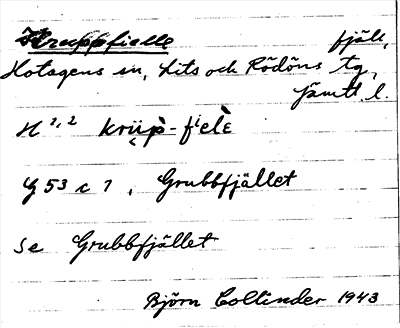 Kruppfielle fjäll,
Hotagens sn, Lits och Rödöns tg,
Jämtl. l.
H 1,2 krü̬p̀-fᶦelɛ̀
G 53 c 1, Grubbfjället
se Grubbfjället
Björn Collinder 1943